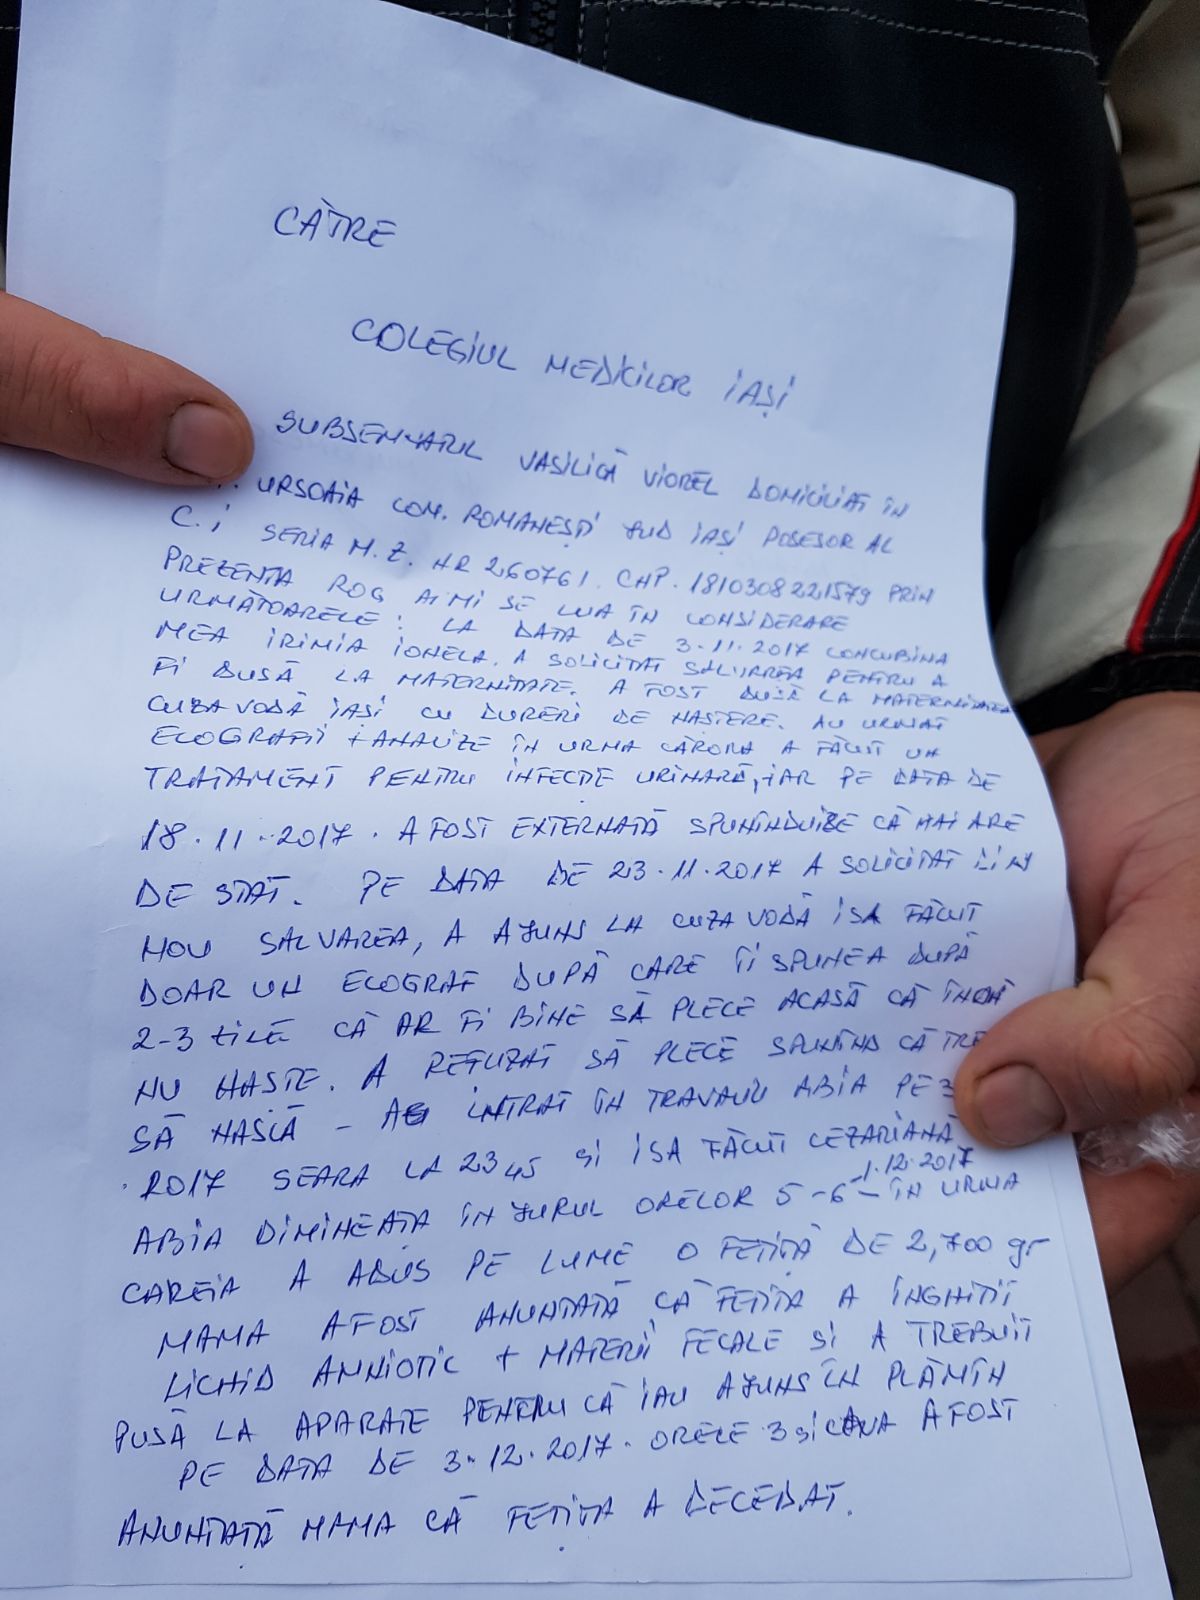 CĂTRE
COLEGIUL MEDICILOR IAȘI
SUBSEMNATUL VASILICĂ VIOREL DOMICILIAT ÎN
URSOAIA COM. ROMANEȘTI JUD IAȘI POSESOR AL
C.i SERIA M.Z. NR 260761. CNP. 1810308221579 PRIN
PREZENTA ROG AIMI SE LUA ÎN CONSIDERARE
URMĂTOARELE: LA DATA DE 3.11.2017 CONCUBINA
MEA IRIMIA IONELA. A SOLICITAT SALVAREA PENTRU A
FI DUSĂ LA MATERNITATE. A FOST DUSĂ LA MATERNITATEA
CUZA VODĂ IAȘI CU DURERI DE NASTERE. AU URMAT
ECOGRAFII + ANALIZE ÎN URMA CĂRORA A FĂCUT UN
TRATAMENT PENTRU INFECȚIE URINARĂ, IAR PE DATA DE
18.11.2017. A FOST EXTERNATĂ SPUNÎNDUISE CĂ MAI ARE
DE STAT. PE DATA DE 23.11.2017 A SOLICITAT DIN
NOU SALVAREA, A AJUNS LA CUZA VODĂ ISA FĂCUT
DOAR UN ECOGRAF DUPĂ CARE ÎI SPUNEA DUPĂ
2-3 ZILE CĂ AR FI BINE SĂ PLECE ACASĂ CĂ ÎNCĂ
NU NASTE. A REFUZAT SĂ PLECE SPUNÎND CĂ TRE
SĂ NASCĂ - A INTRAT ÎN TRAVALIU ABIA PE 3
.2017 SEARA LA 23 45 și ISA FĂCUT CEZARIANĂ
ABIA DIMINEAȚA ÎN JURUL ORELOR 5-6 - 1.12.2017 - ÎN URMA
CAREIA A ADUS PE LUME O FETIȚĂ DE 2,700 gr
MAMA A FOST ANUNȚATĂ CĂ FETIȚA A ÎNGHIȚIT
LICHID AMNIOTIC + MATERII FECALE și A TREBUIT
PUSĂ LA APARATE PENTRU CĂ IAU AJUNS ÎN PLĂMÎN
PE DATA DE 3.12.2017. ORELE 3 și CEVA A FOST
ANUNȚATĂ MAMA CĂ FETIȚA A DECEDAT.